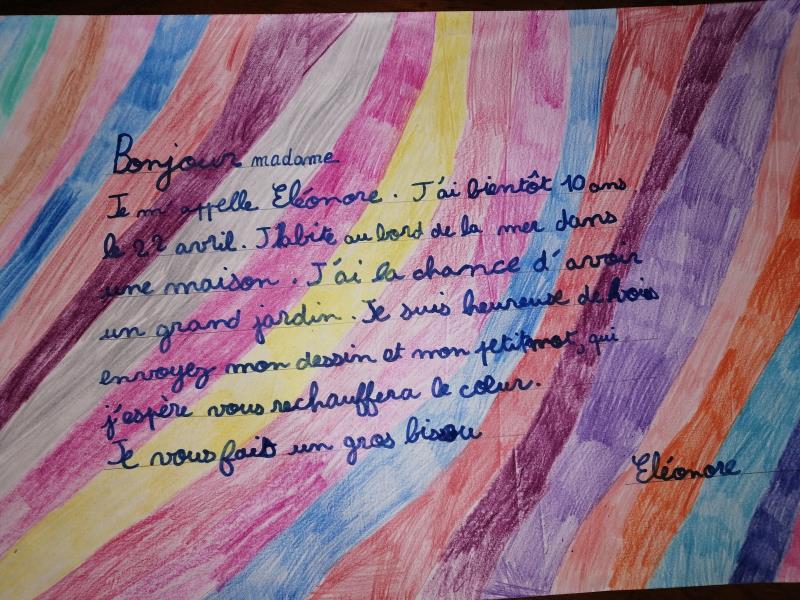 Bonjour madame
Je m'appelle Eléonore. J'ai bientôt 10 ans
le 22 avril. J'habite au bord de la mer dans
une maison. J'ai la chance d'avoir
un grand jardin. Je suis heureuse de vous
envoyez mon dessin et mon petit mot, qui
j'espère vous rechauffera le cœur.
Je vous fais un gros bisou
Eléonore